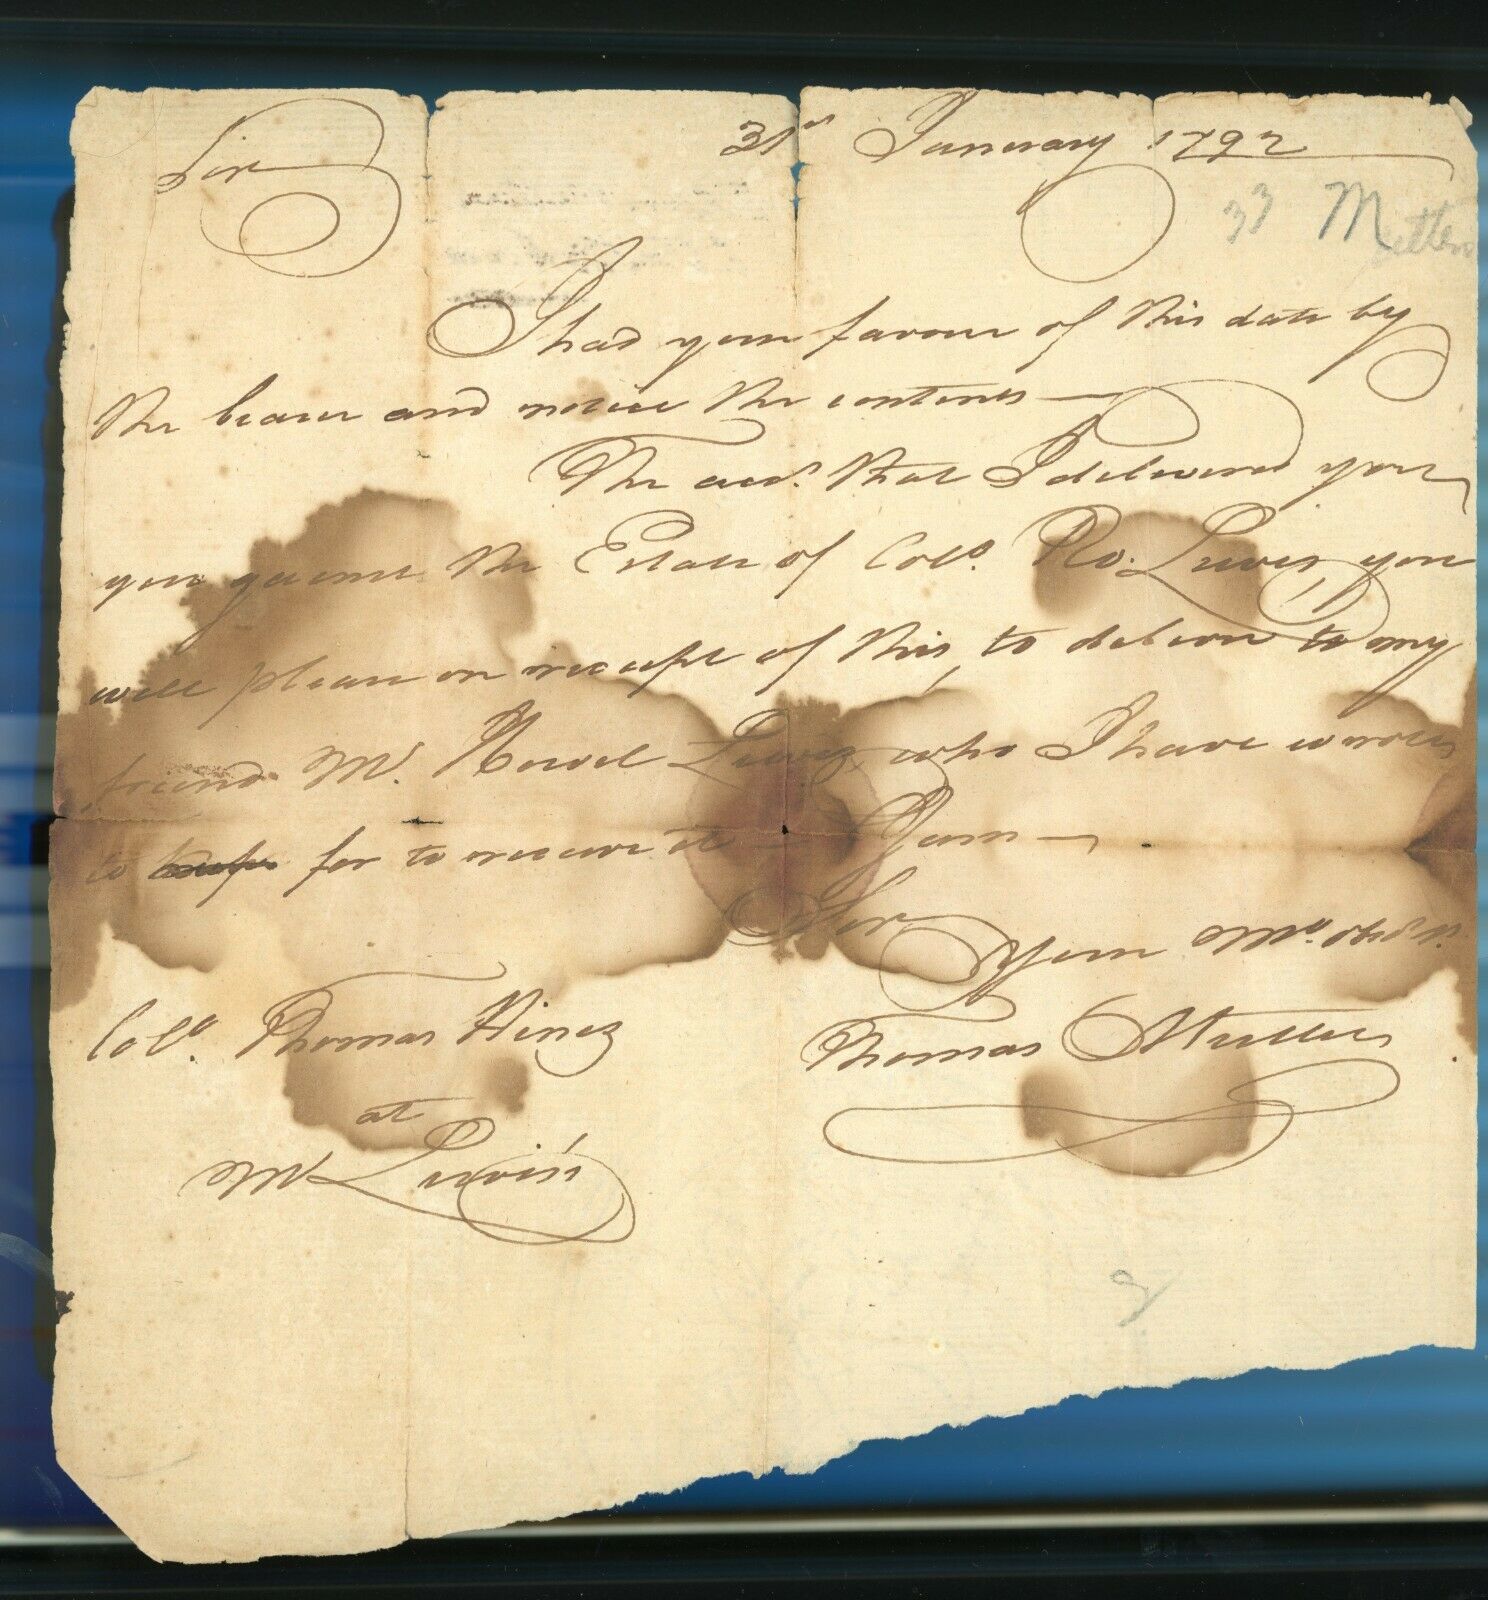 31st January 1792
Sir
33 M
I had your favour of this date by
the bearer and notice the contents —
The acct. that I delivered you
the Estate of Colo. Ro. Lewis you
will please on receipt of this, to deliver to my
friend Mr. Howel Lewis, who I have wrote
to for to receive it — I am —
Sir
Your Mo. obt. St.
Colo. Thomas
Thomas
at
Mr Lewis's